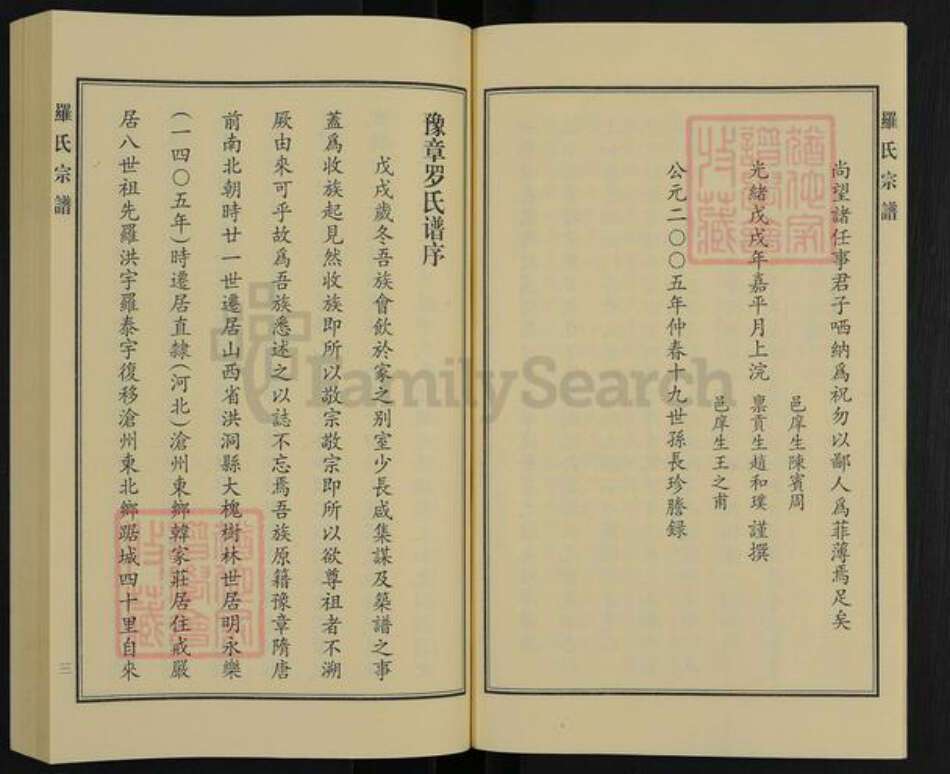 羅氏宗譜
尚望諸任事君子哂納爲祝勿以鄙人爲菲薄焉足矣
邑庠生陳賓周
光緒戊戌年嘉平月上浣 禀貢生趙和璞 謹撰
邑庠生王之甫
公元二○○五年仲春十九世孫長珍謄録
豫章罗氏谱序
戊戌歲冬吾族會飲於家之別室少長咸集謀及築譜之事
蓋爲收族起見然收族即所以敬宗敬宗即所以欲尊祖者不溯
厥由來可乎故爲吾族悉述之以誌不忘焉吾族原籍豫章隋唐
前南北朝時廿一世遷居山西省洪洞縣大槐樹林世居明永樂
(一四○五年)時遷居直隸(河北)滄州東鄉韓家莊居住戒嚴
居八世祖先羅洪宇羅泰宇復移滄州東北鄉踞城四十里自來
羅氏宗譜
三
FamilySearch